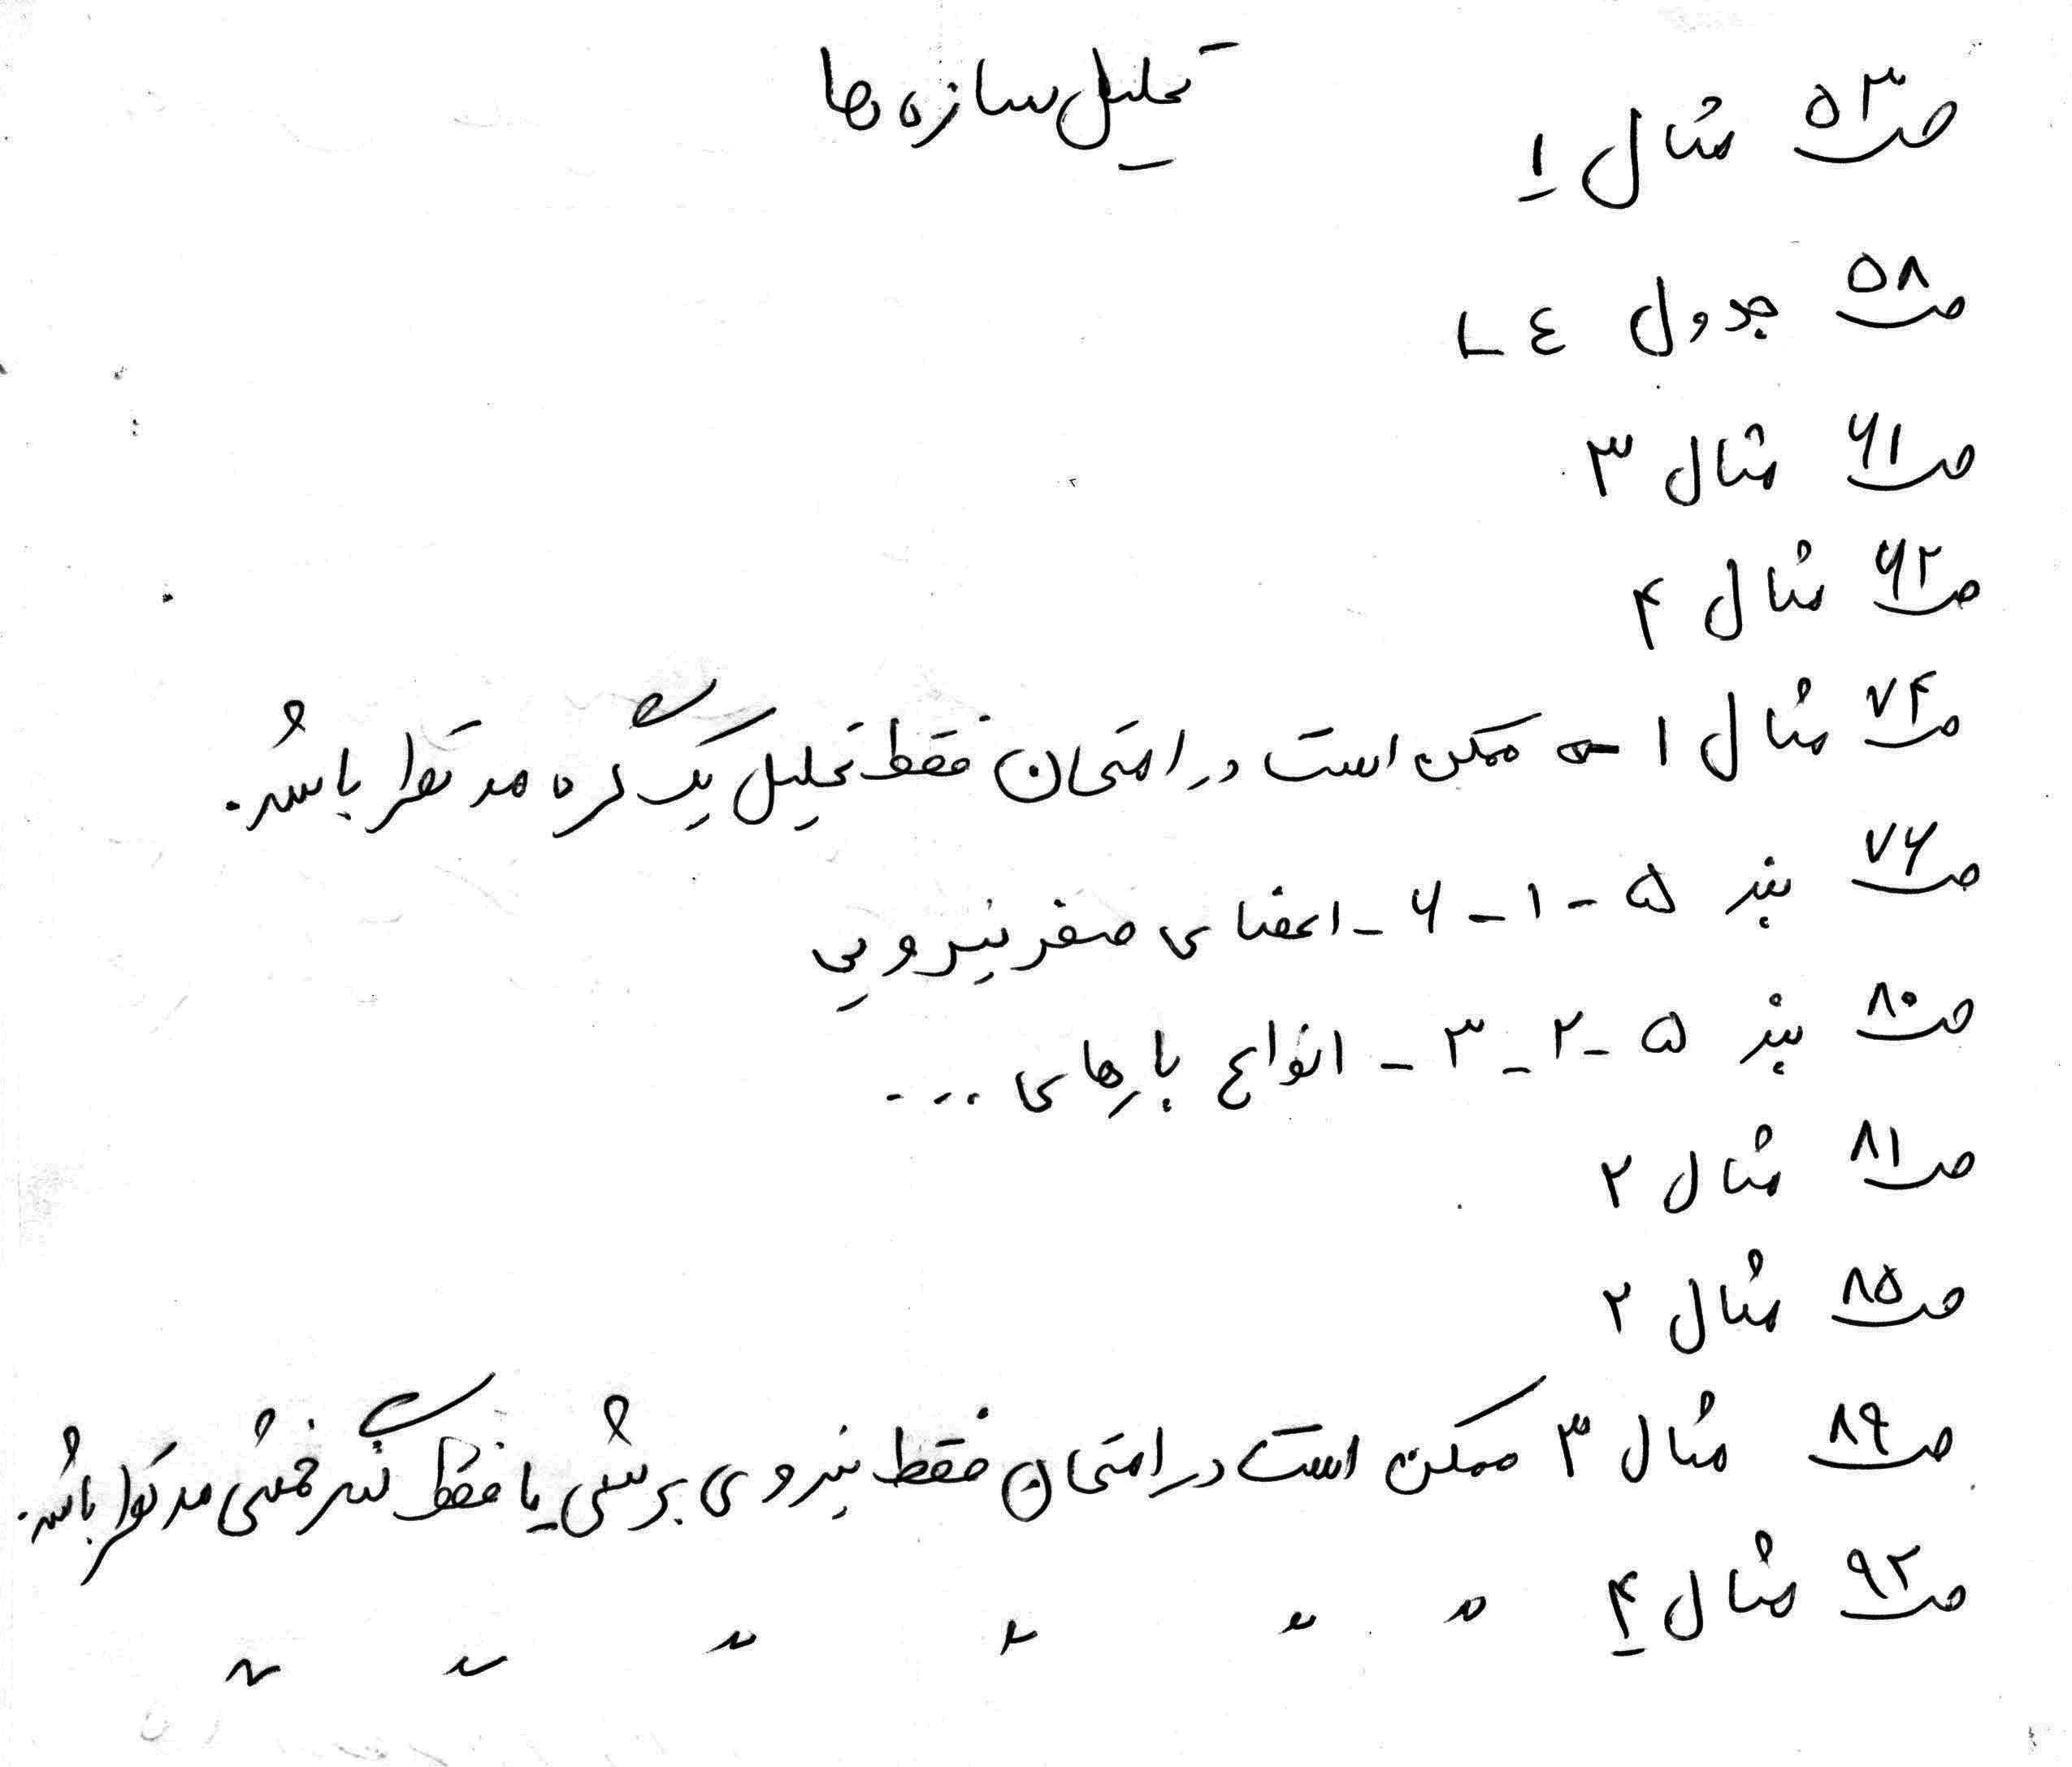 تحلیل سازه ها
ص ۵۳ مثال ۱
ص ۵۸ جدول ٤
ص ۶۱ مثال ۳
ص ۶۲ مثال ۴
ص ۷۴ مثال ۱ ← ممکن است در امتحان فقط تحلیل یک گره مد نظر باشد.
ص ۷۶ بند ۵-۱-۶- اعضای صفر نیرویی
ص ۸۰ بند ۵-۲-۳- انواع بارهای ...
ص ۸۱ مثال ۲
ص ۸۵ مثال ۲
ص ۸۹ مثال ۳ ممکن است در امتحان فقط نیروی برشی یا فقط لنگر خمشی مد نظر باشد.
ص ۹۲ مثال ۴ " " " " " "